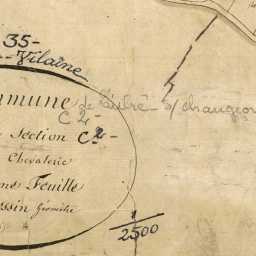 35-
- Vilaine
mmune de
C 2-
Section C 2-
Chevalerie
Feuille
ssin Géomètre
2500